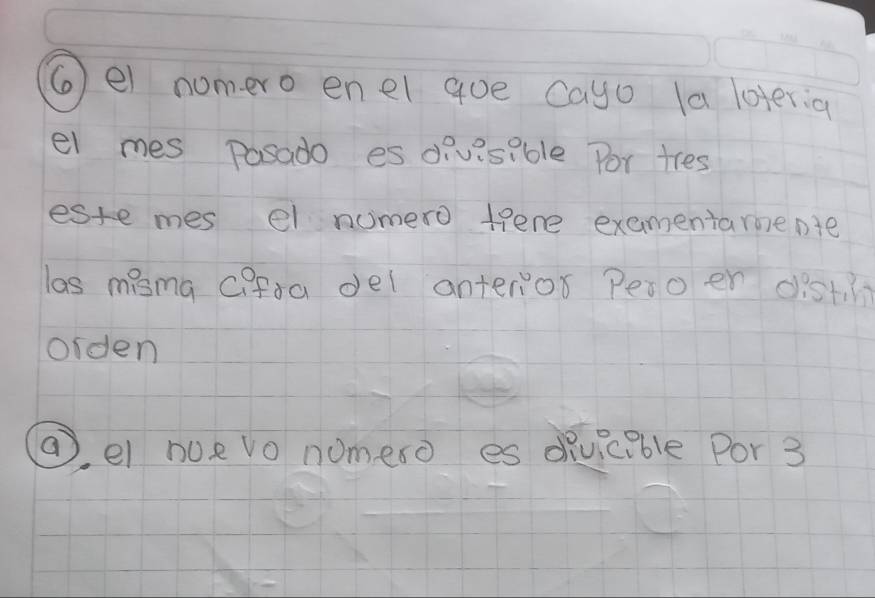 6 el nomero en el qoe cayo la loteria
el mes pasado es divisible Por tres
este mes el nomero tiene examentarmente
las misma cifra del anterior Pero en distin
orden
a. el noevo nomero es divicible Por 3